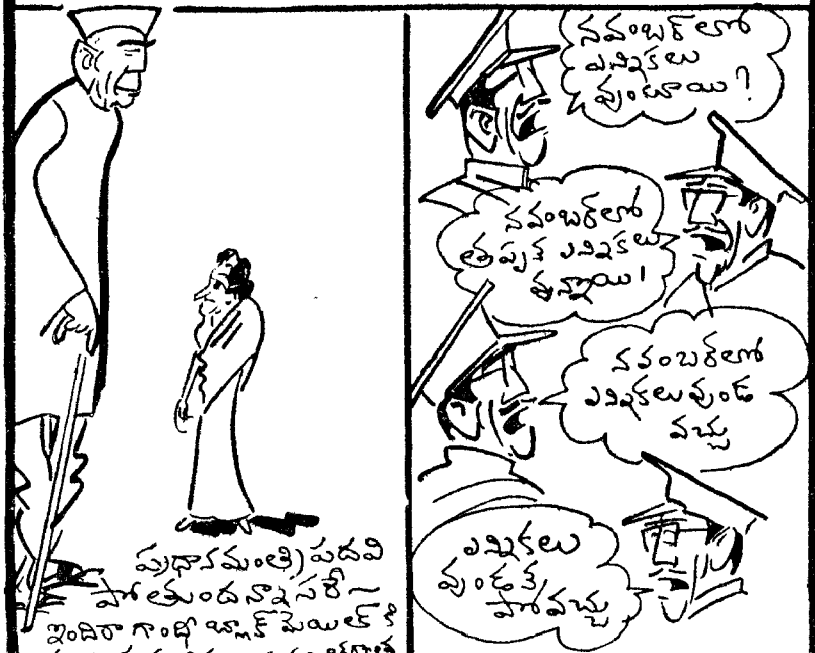 ప్రధానమంత్రి పదవి
పోతుందన్నా సరే ~
ఇందిరా గాంధీ బ్లాక్ మెయిల్ కి
నవంబర్ లో
ఎన్నికలు
వుంటాయి?
నవంబర్‌లో
తప్పక ఎన్నికలు
వున్నాయి!
నవంబర్‌లో
ఎన్నికలు వుండ
వచ్చు
ఎన్నికలు
వుండక
పోవచ్చు